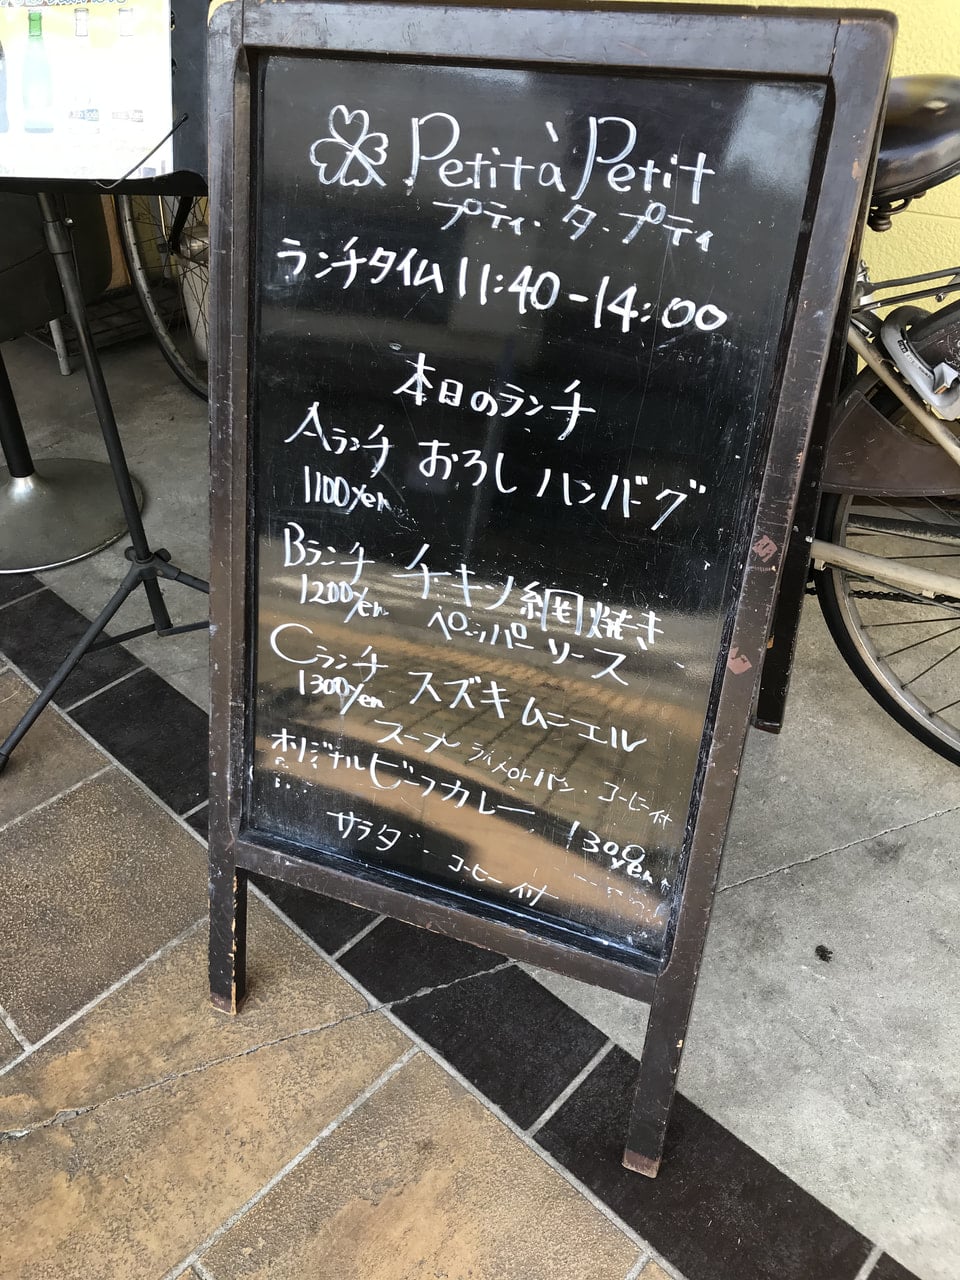 Petit à Petit
プティ・タ・プティ
ランチタイム 11:40-14:00
本日のランチ
Aランチ おろしハンバーグ
1100yen
Bランチ チキン網焼き
1200yen ペッパーソース
Cランチ スズキムニエル
1300yen
スープ ライスorパン・コーヒー付
オリジナルビーフカレー
1300yen
サラダ・コーヒー付